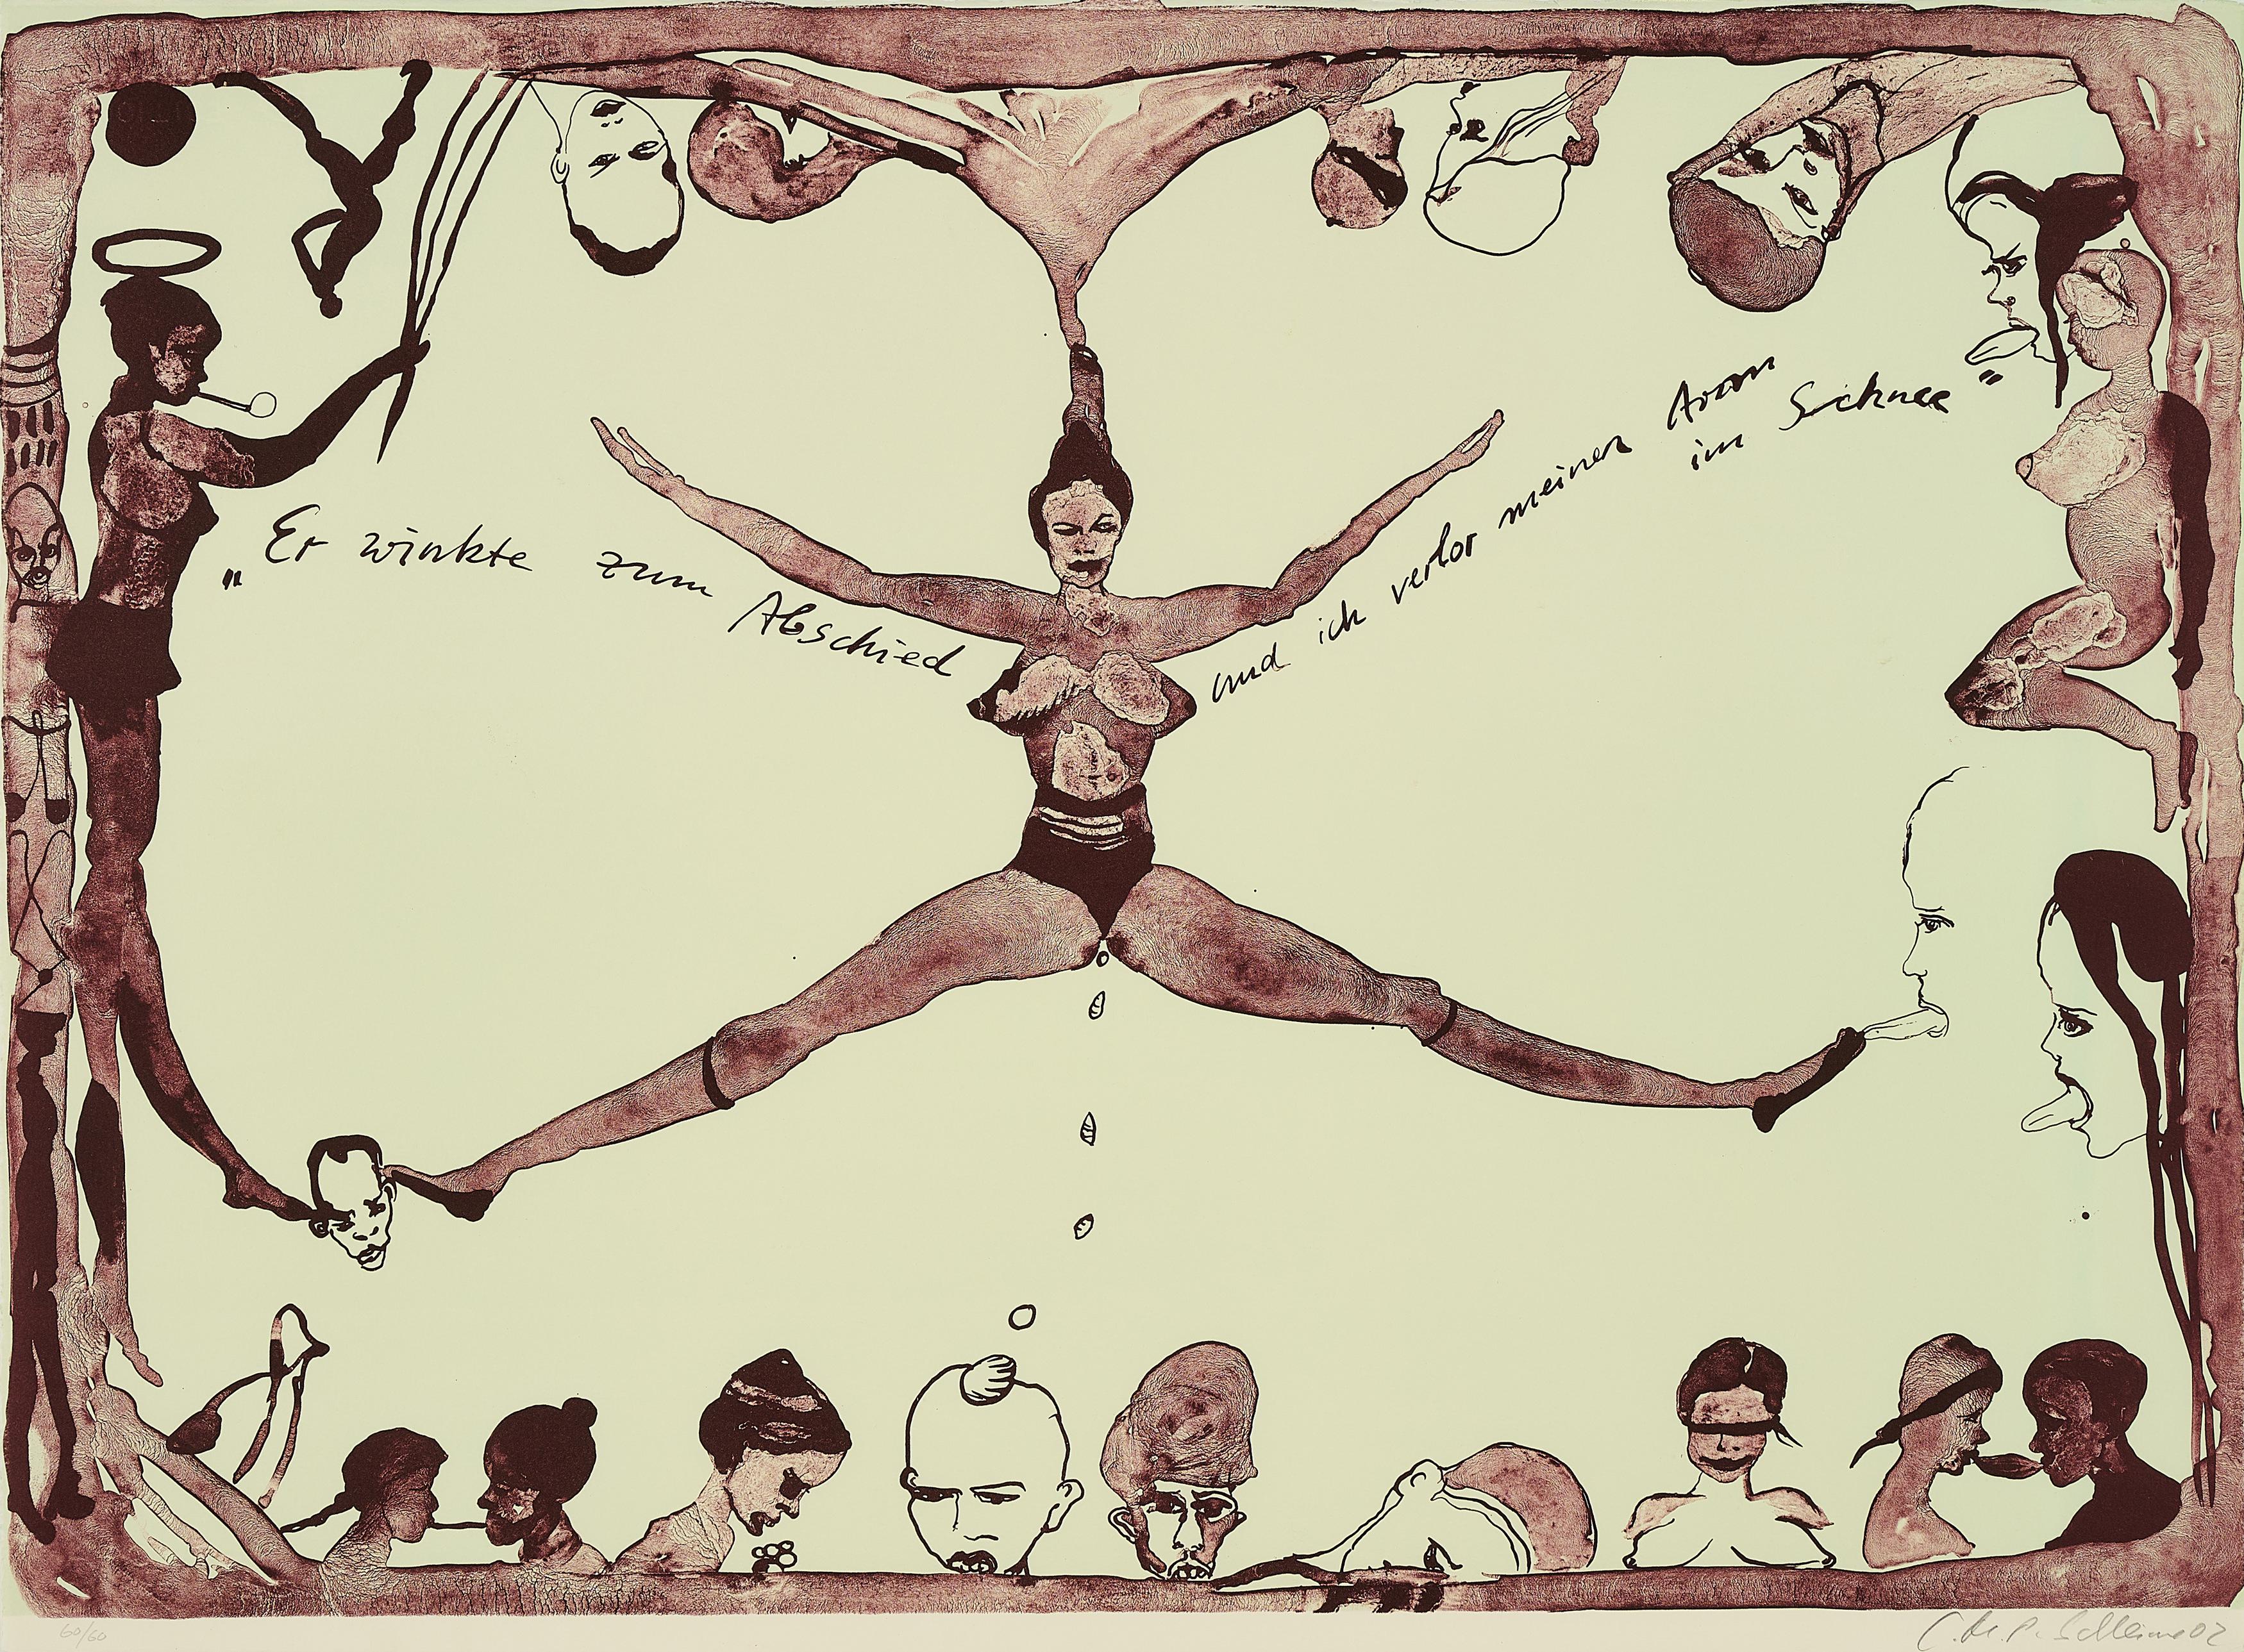 „Er winkte zum Abschied
und ich verlor meinen Arm
im Schnee"
60/60
C. M. P. Schleime 02